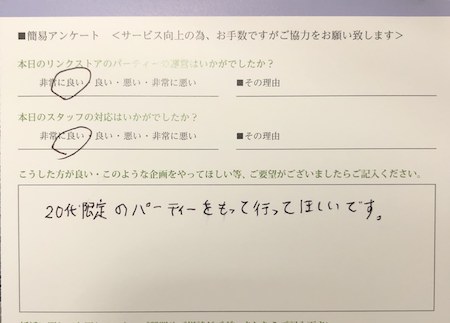 ■簡易アンケート ＜サービス向上の為、お手数ですがご協力をお願い致します＞
本日のリンクストアのパーティー運営はいかがでしたか？
非常に良い・良い・悪い・非常に悪い ■その理由
本日のスタッフの対応はいかがでしたか？
非常に良い・良い・悪い・非常に悪い ■その理由
こうした方が良い・このような企画をやってほしい等、ご要望がございましたらご記入ください。
20代限定のパーティーをもって行ってほしいです。